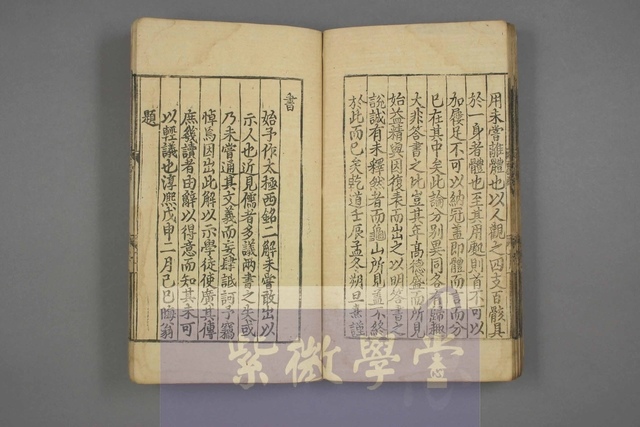 用未嘗離體也以人觀之四支百骸具
於一身者體也至其用處則首不可以
加屨足不可以納冠蓋即體而言而分
已在其中矣此論分別異同各有歸趣
大非答書之比豈其年高德盛而所見
始益精與因復表而出之以明答書之
說誠有未釋然者而龜山所見蓋不終
於此而已矣乾道壬辰孟冬朔旦熹謹
書
始予作太極西銘二解未嘗敢出以
示人也近見儒者多議兩書之失或
乃未嘗通其文義而妄肆詆訶予竊
悼焉因出此解以示學徒使廣其傳
庶幾讀者由辭以得意而知其未可
以輕議也淳熙戊申二月己巳晦翁
題
紫微學堂